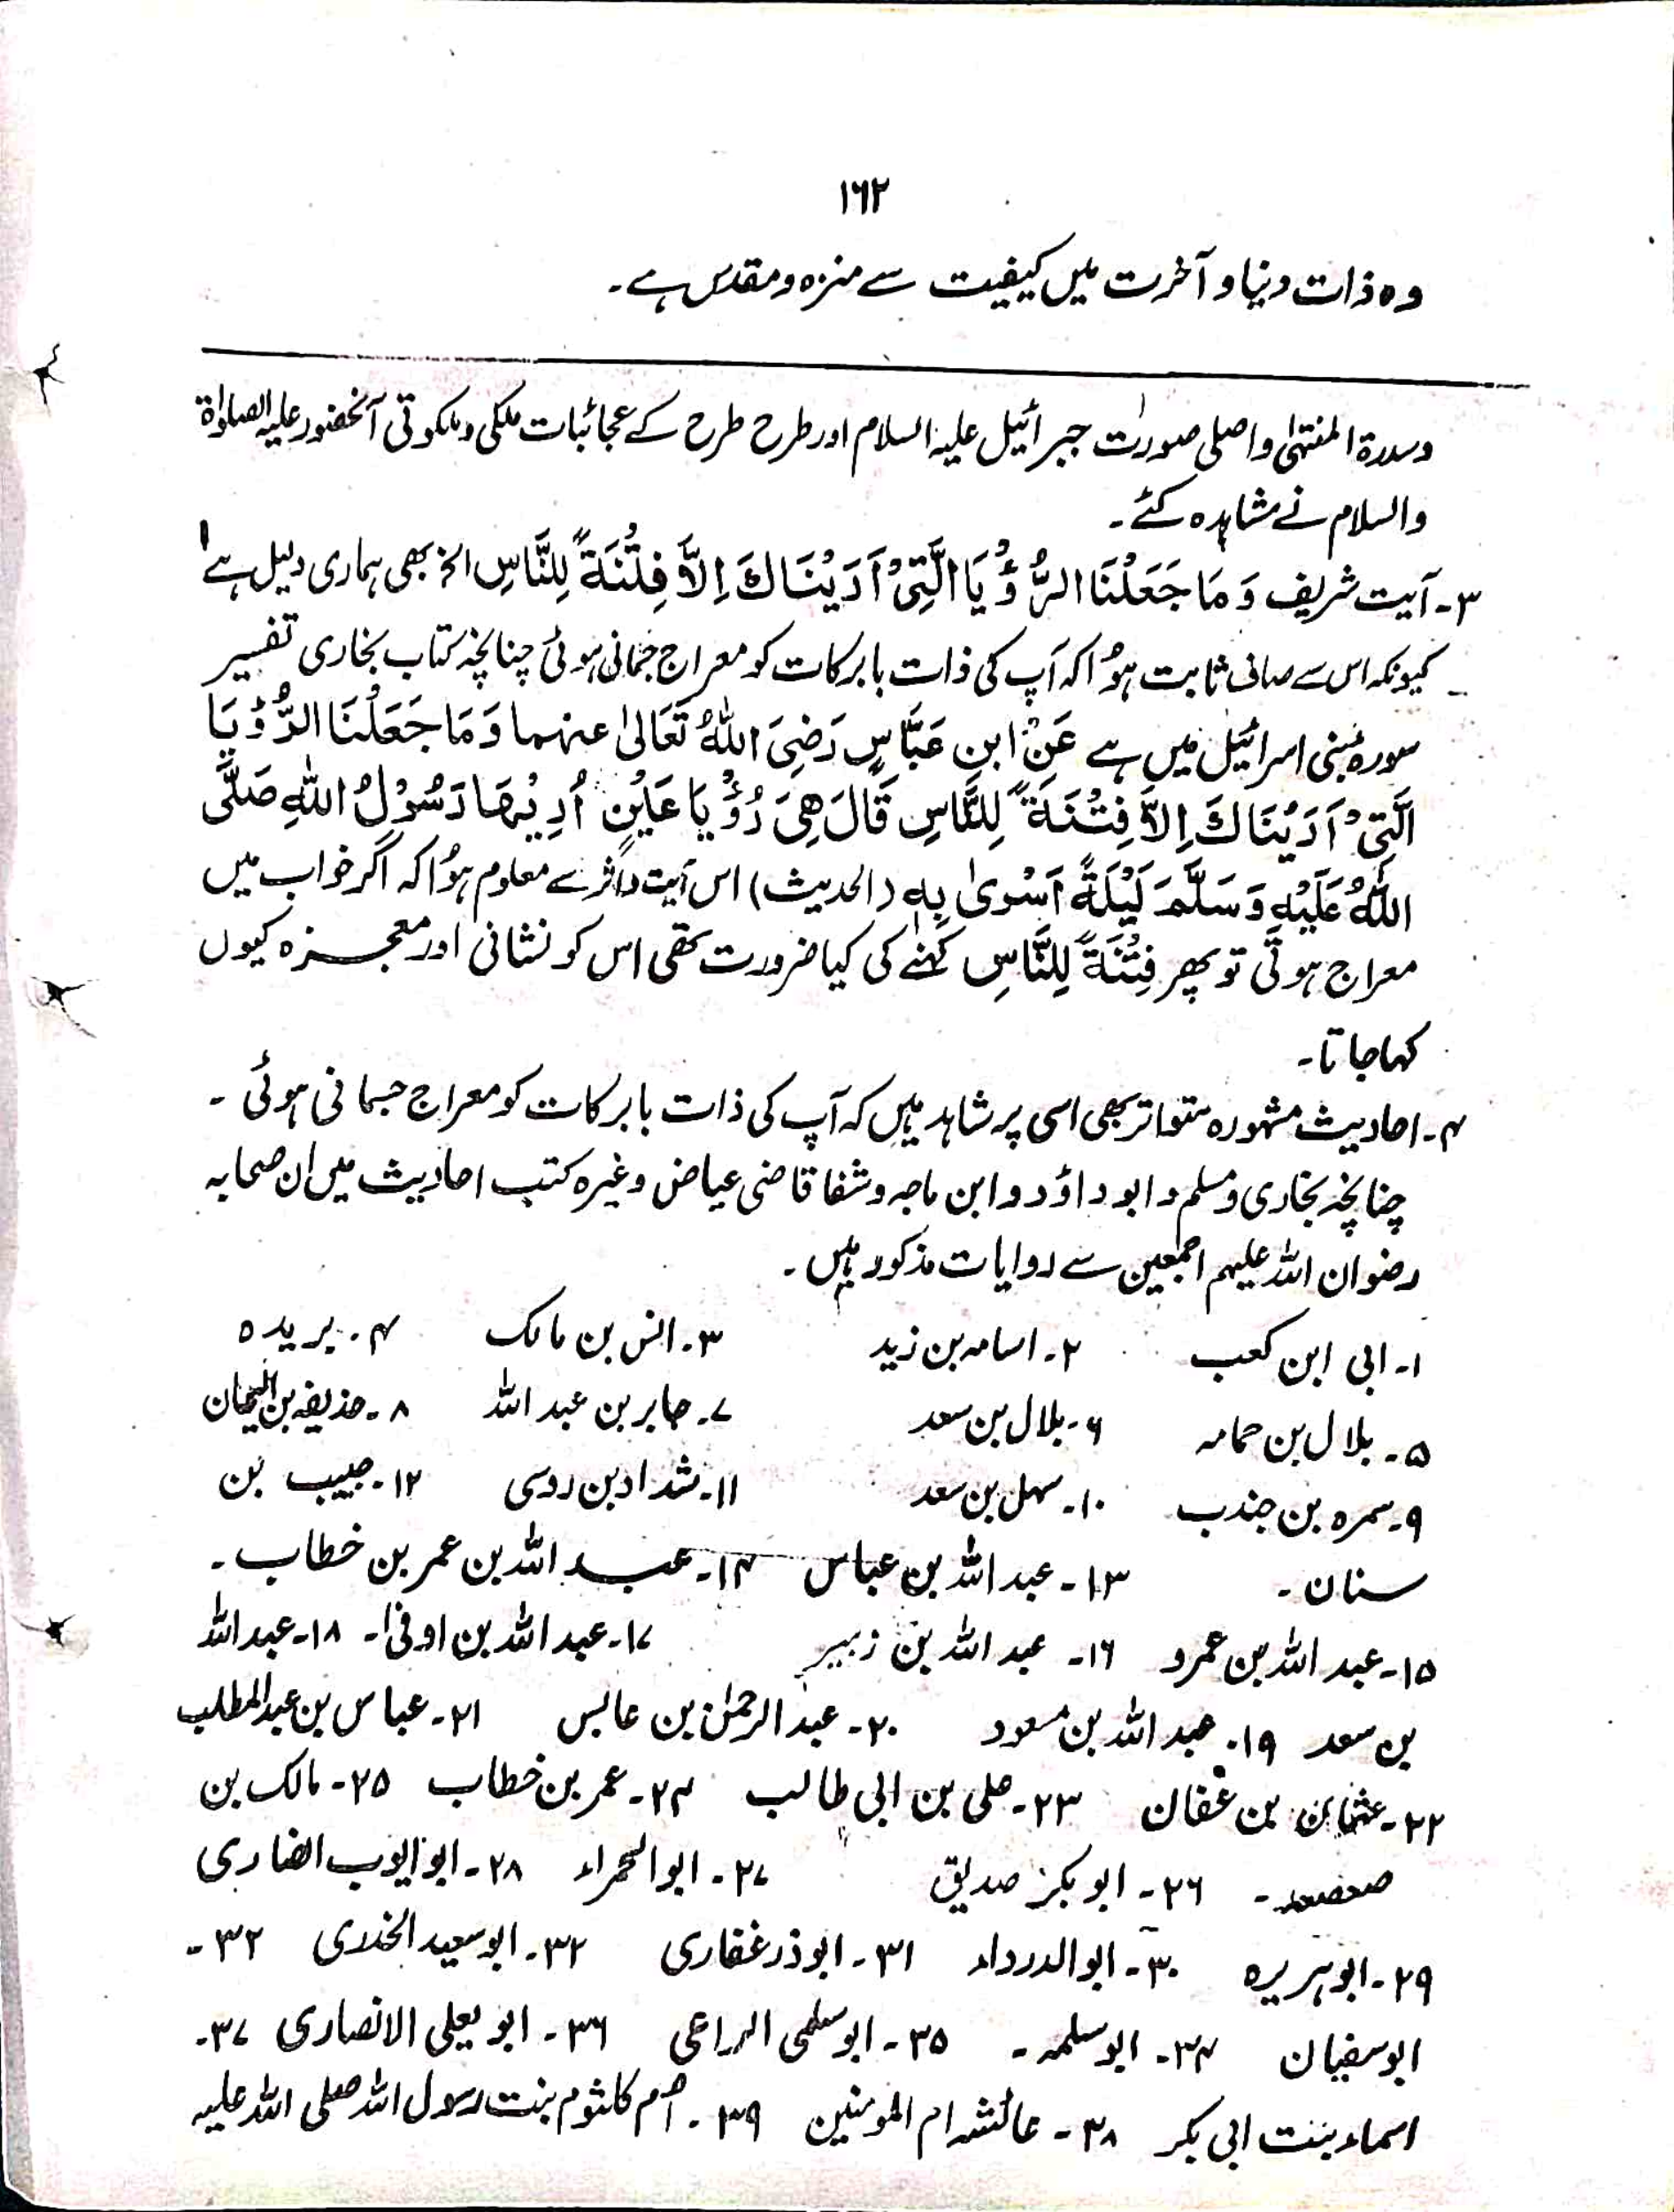 ۱۶۲
وہ ذات دنیا و آخرت میں کیفیت سے منزہ و مقدس ہے۔
وسدرۃ المنتہیٰ واصلی صورت جبرائیل علیہ السلام اور طرح طرح کے عجائبات ملکی وملکوتی آنحضور علیہ الصلوٰۃ
والسلام نے مشاہدہ کئے۔
۳۔ آیت شریف وَمَا جَعَلْنَا الرُّؤْيَا الَّتِيْ اَرَيْنَاكَ اِلَّا فِتْنَةً لِلنَّاسِ الخ بھی ہماری دلیل ہے
کیونکہ اس سے صاف ثابت ہوُا کہ آپ کی ذات بابرکات کو معراج جسمانی ہوئی چنانچہ کتاب بخاری تفسیر
سورۂ بنی اسرائیل میں ہے عَنْ ابنِ عَبَّاسٍ رَضِیَ اللّٰهُ تَعَالیٰ عنہما وَمَا جَعَلْنَا الرُّؤْيَا
الَّتِيْ اَرَيْنَاكَ اِلَّا فِتْنَةً لِلنَّاسِ قَالَ هِیَ رُؤْيَا عَيْنٍ اُرِيْهَا رَسُوْلُ اللّٰهِ صَلَّی
اللّٰهُ عَلَيْهِ وَسَلَّمَ لَيْلَةً اَسْریٰ بِهٖ (الحدیث) اس آیت واثر سے معلوم ہوُا کہ اگر خواب میں
معراج ہوتی تو پھر فِتْنَةً لِلنَّاسِ کہنے کی کیا ضرورت تھی اس کو نشانی اور معجزہ کیوں
کہا جاتا۔
۴۔ احادیث مشہورہ متواتر بھی اسی پر شاہد ہیں کہ آپ کی ذات بابرکات کو معراج جسمانی ہوئی۔
چنانچہ بخاری ومسلم وابوداؤد وابن ماجہ وشفا قاضی عیاض وغیرہ کتب احادیث میں ان صحابہ
رضوان اللہ علیہم اجمعین سے روایات مذکور ہیں۔
۱۔ ابی ابن کعب ۲۔ اسامہ بن زید ۳۔ انس بن مالک ۴۔ بریدہ
۵۔ بلال بن حمامہ ۶۔ بلال بن سعد ۷۔ جابر بن عبداللہ ۸۔ حذیفہ بن الیمان
۹۔ سمرہ بن جندب ۱۰۔ سہل بن سعد ۱۱۔ شداد بن روسی ۱۲۔ حبیب بن
سنان۔ ۱۳۔ عبداللہ بن عباس ۱۴۔ عبداللہ بن عمر بن خطاب۔
۱۵۔ عبداللہ بن عمرو ۱۶۔ عبداللہ بن زبیر ۱۷۔ عبداللہ بن اوفیٰ۔ ۱۸۔ عبداللہ
بن سعد ۱۹۔ عبداللہ بن مسعود ۲۰۔ عبدالرحمٰن بن عابس ۲۱۔ عباس بن عبدالمطلب
۲۲۔ عثمان بن عفان ۲۳۔ علی بن ابی طالب ۲۴۔ عمر بن خطاب ۲۵۔ مالک بن
صعصعہ۔ ۲۶۔ ابوبکر صدیق ۲۷۔ ابوالحمراء ۲۸۔ ابوایوب انصاری
۲۹۔ ابوہریرہ ۳۰۔ ابوالدرداء ۳۱۔ ابوذر غفاری ۳۲۔ ابوسعید الخدری ۳۲۔
ابوسفیان ۳۴۔ ابوسلمہ۔ ۳۵۔ ابوسلمی الراعی ۳۶۔ ابویعلی الانصاری ۳۷۔
اسماء بنت ابی بکر ۳۸۔ عائشہ ام المومنین ۳۹۔ اُم کلثوم بنت رسول اللہ صلی اللہ علیہ